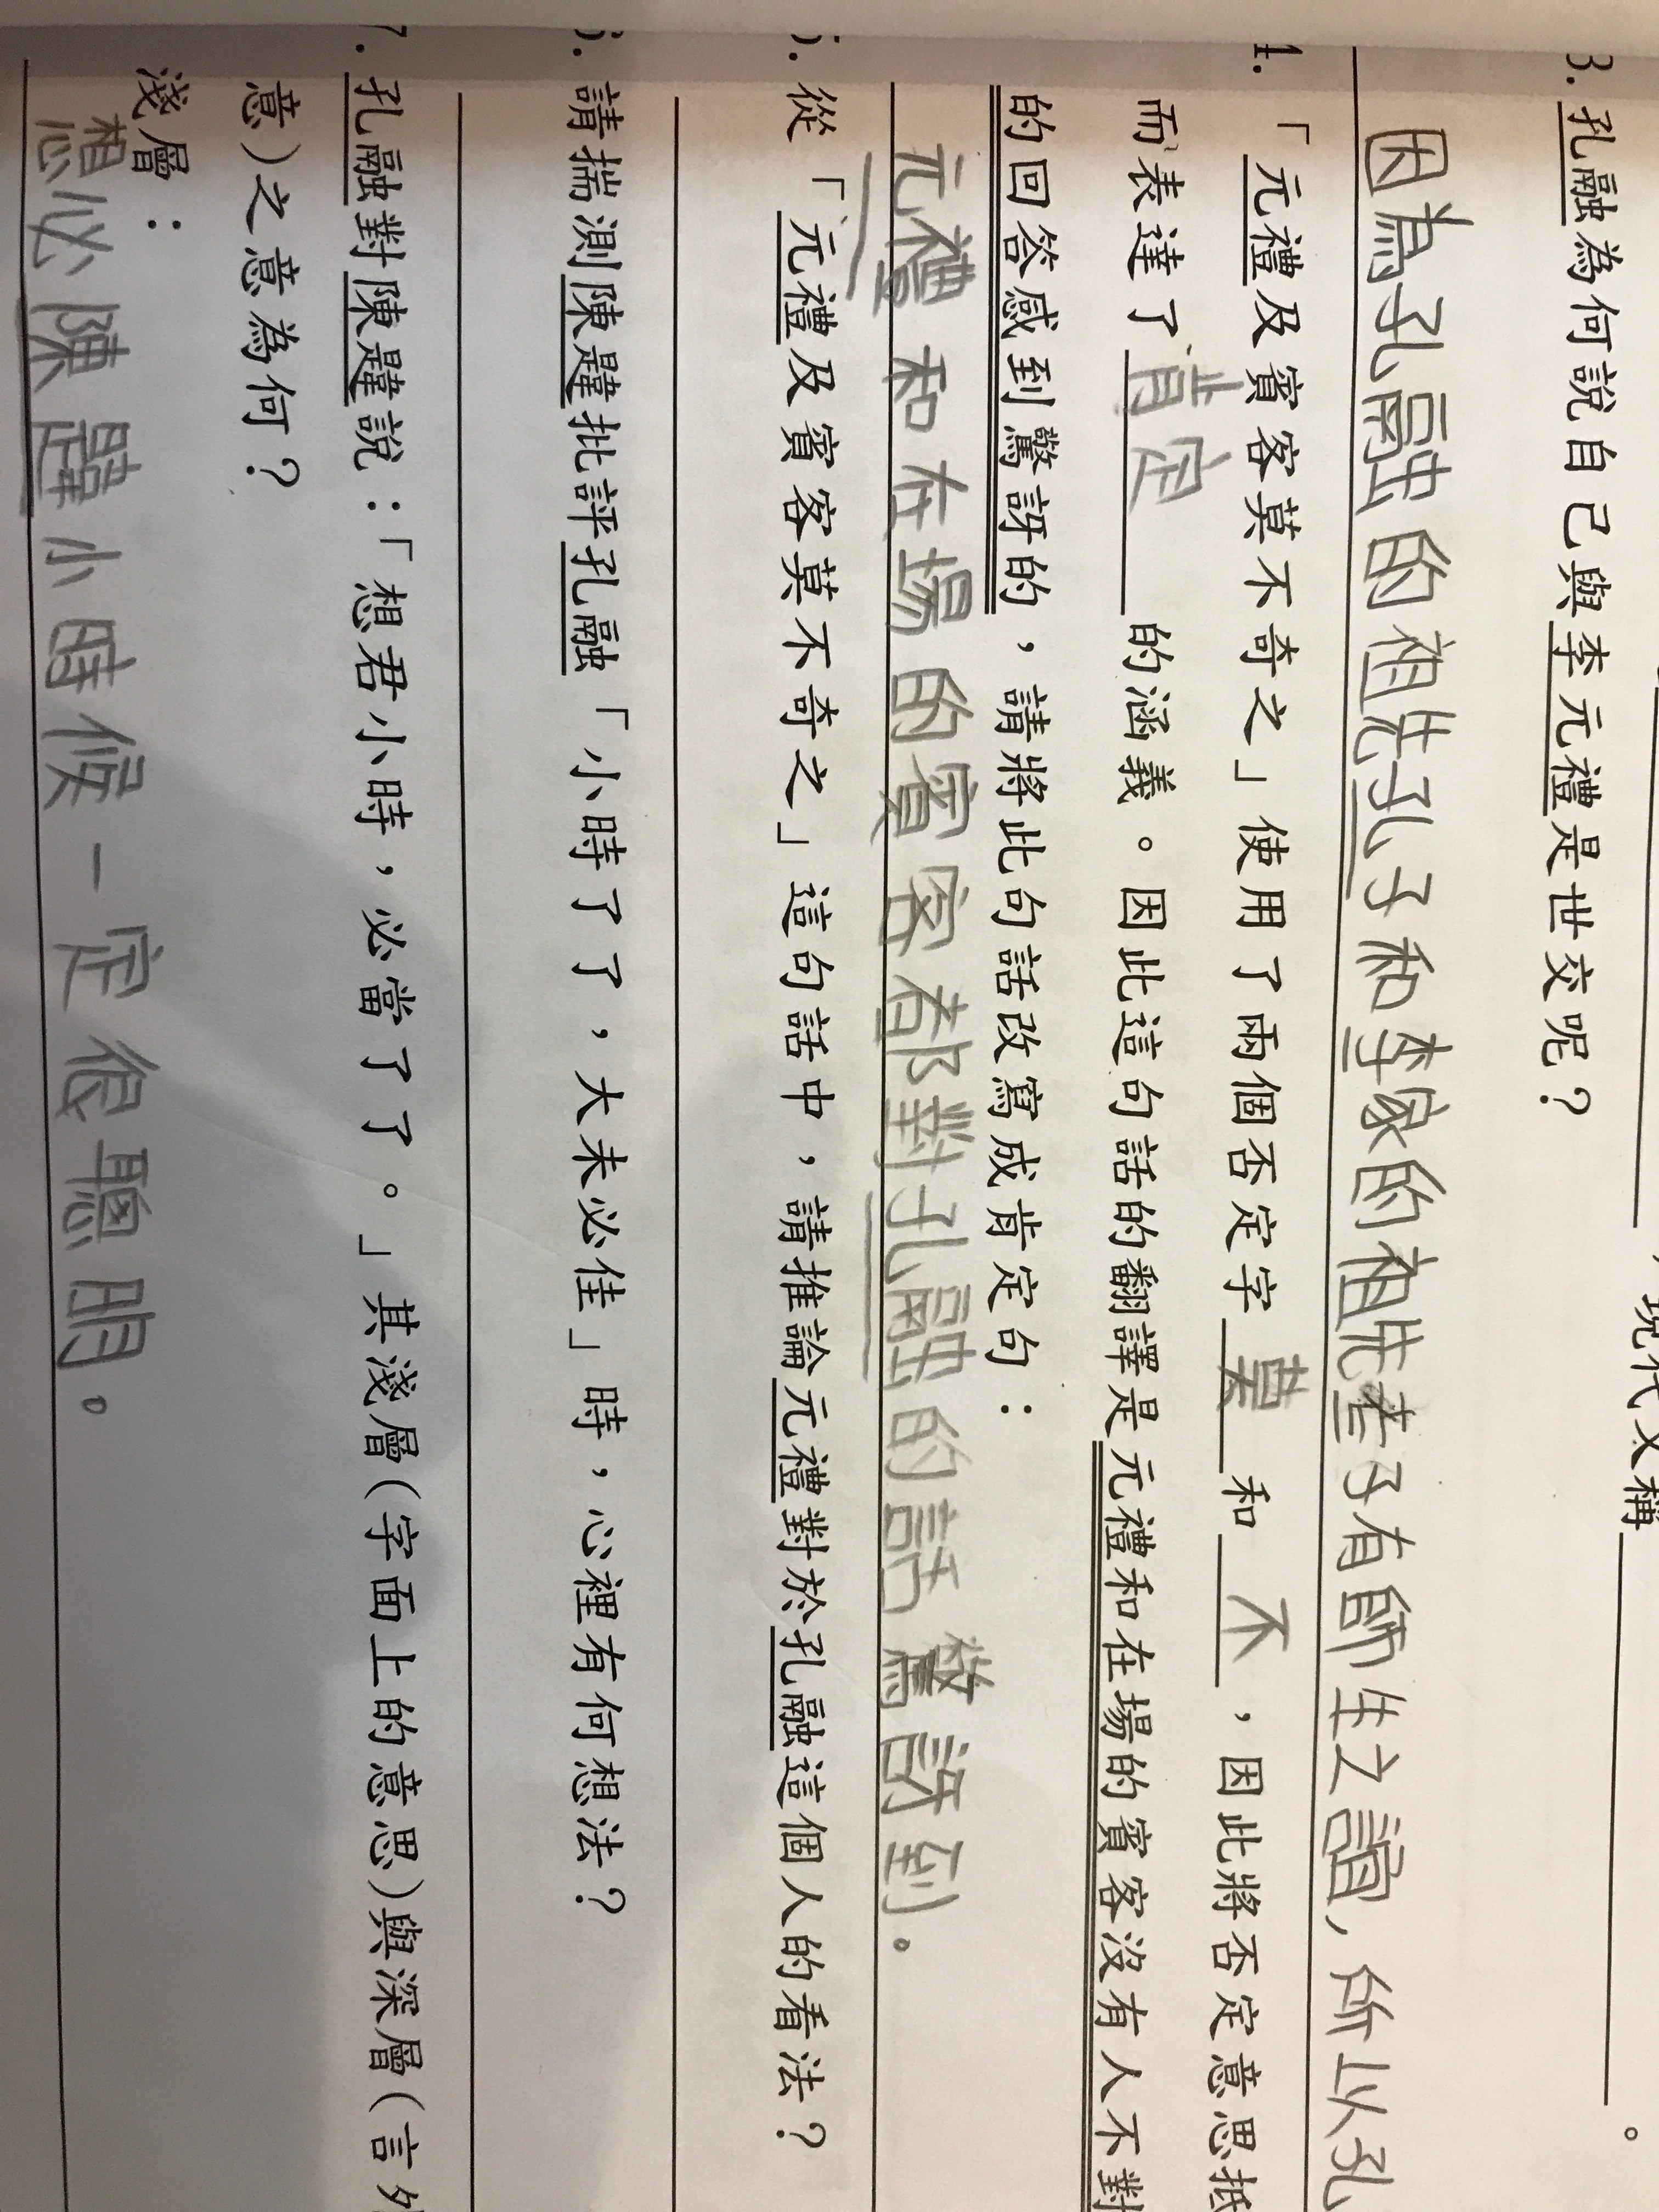 ，現代文稱＿＿＿＿。
3. 孔融為何說自己與李元禮是世交呢？
因為孔融的祖先孔子和李家的祖先老子有師生之誼，所以孔
4. 「元禮及賓客莫不奇之」使用了兩個否定字 莫 和 不 ，因此將否定意思抵
而表達了 肯定 的涵義。因此這句話的翻譯是元禮和在場的賓客沒有人不對
的回答感到驚訝的，請將此句話改寫成肯定句：
元禮和在場的賓客都對孔融的話驚訝到。
5. 從「元禮及賓客莫不奇之」這句話中，請推論元禮對於孔融這個人的看法？
6. 請揣測陳韙批評孔融「小時了了，大未必佳」時，心裡有何想法？
7. 孔融對陳韙說：「想君小時，必當了了。」其淺層(字面上的意思)與深層(言外
意)之意為何？
淺層：
想必陳韙小時候一定很聰明。